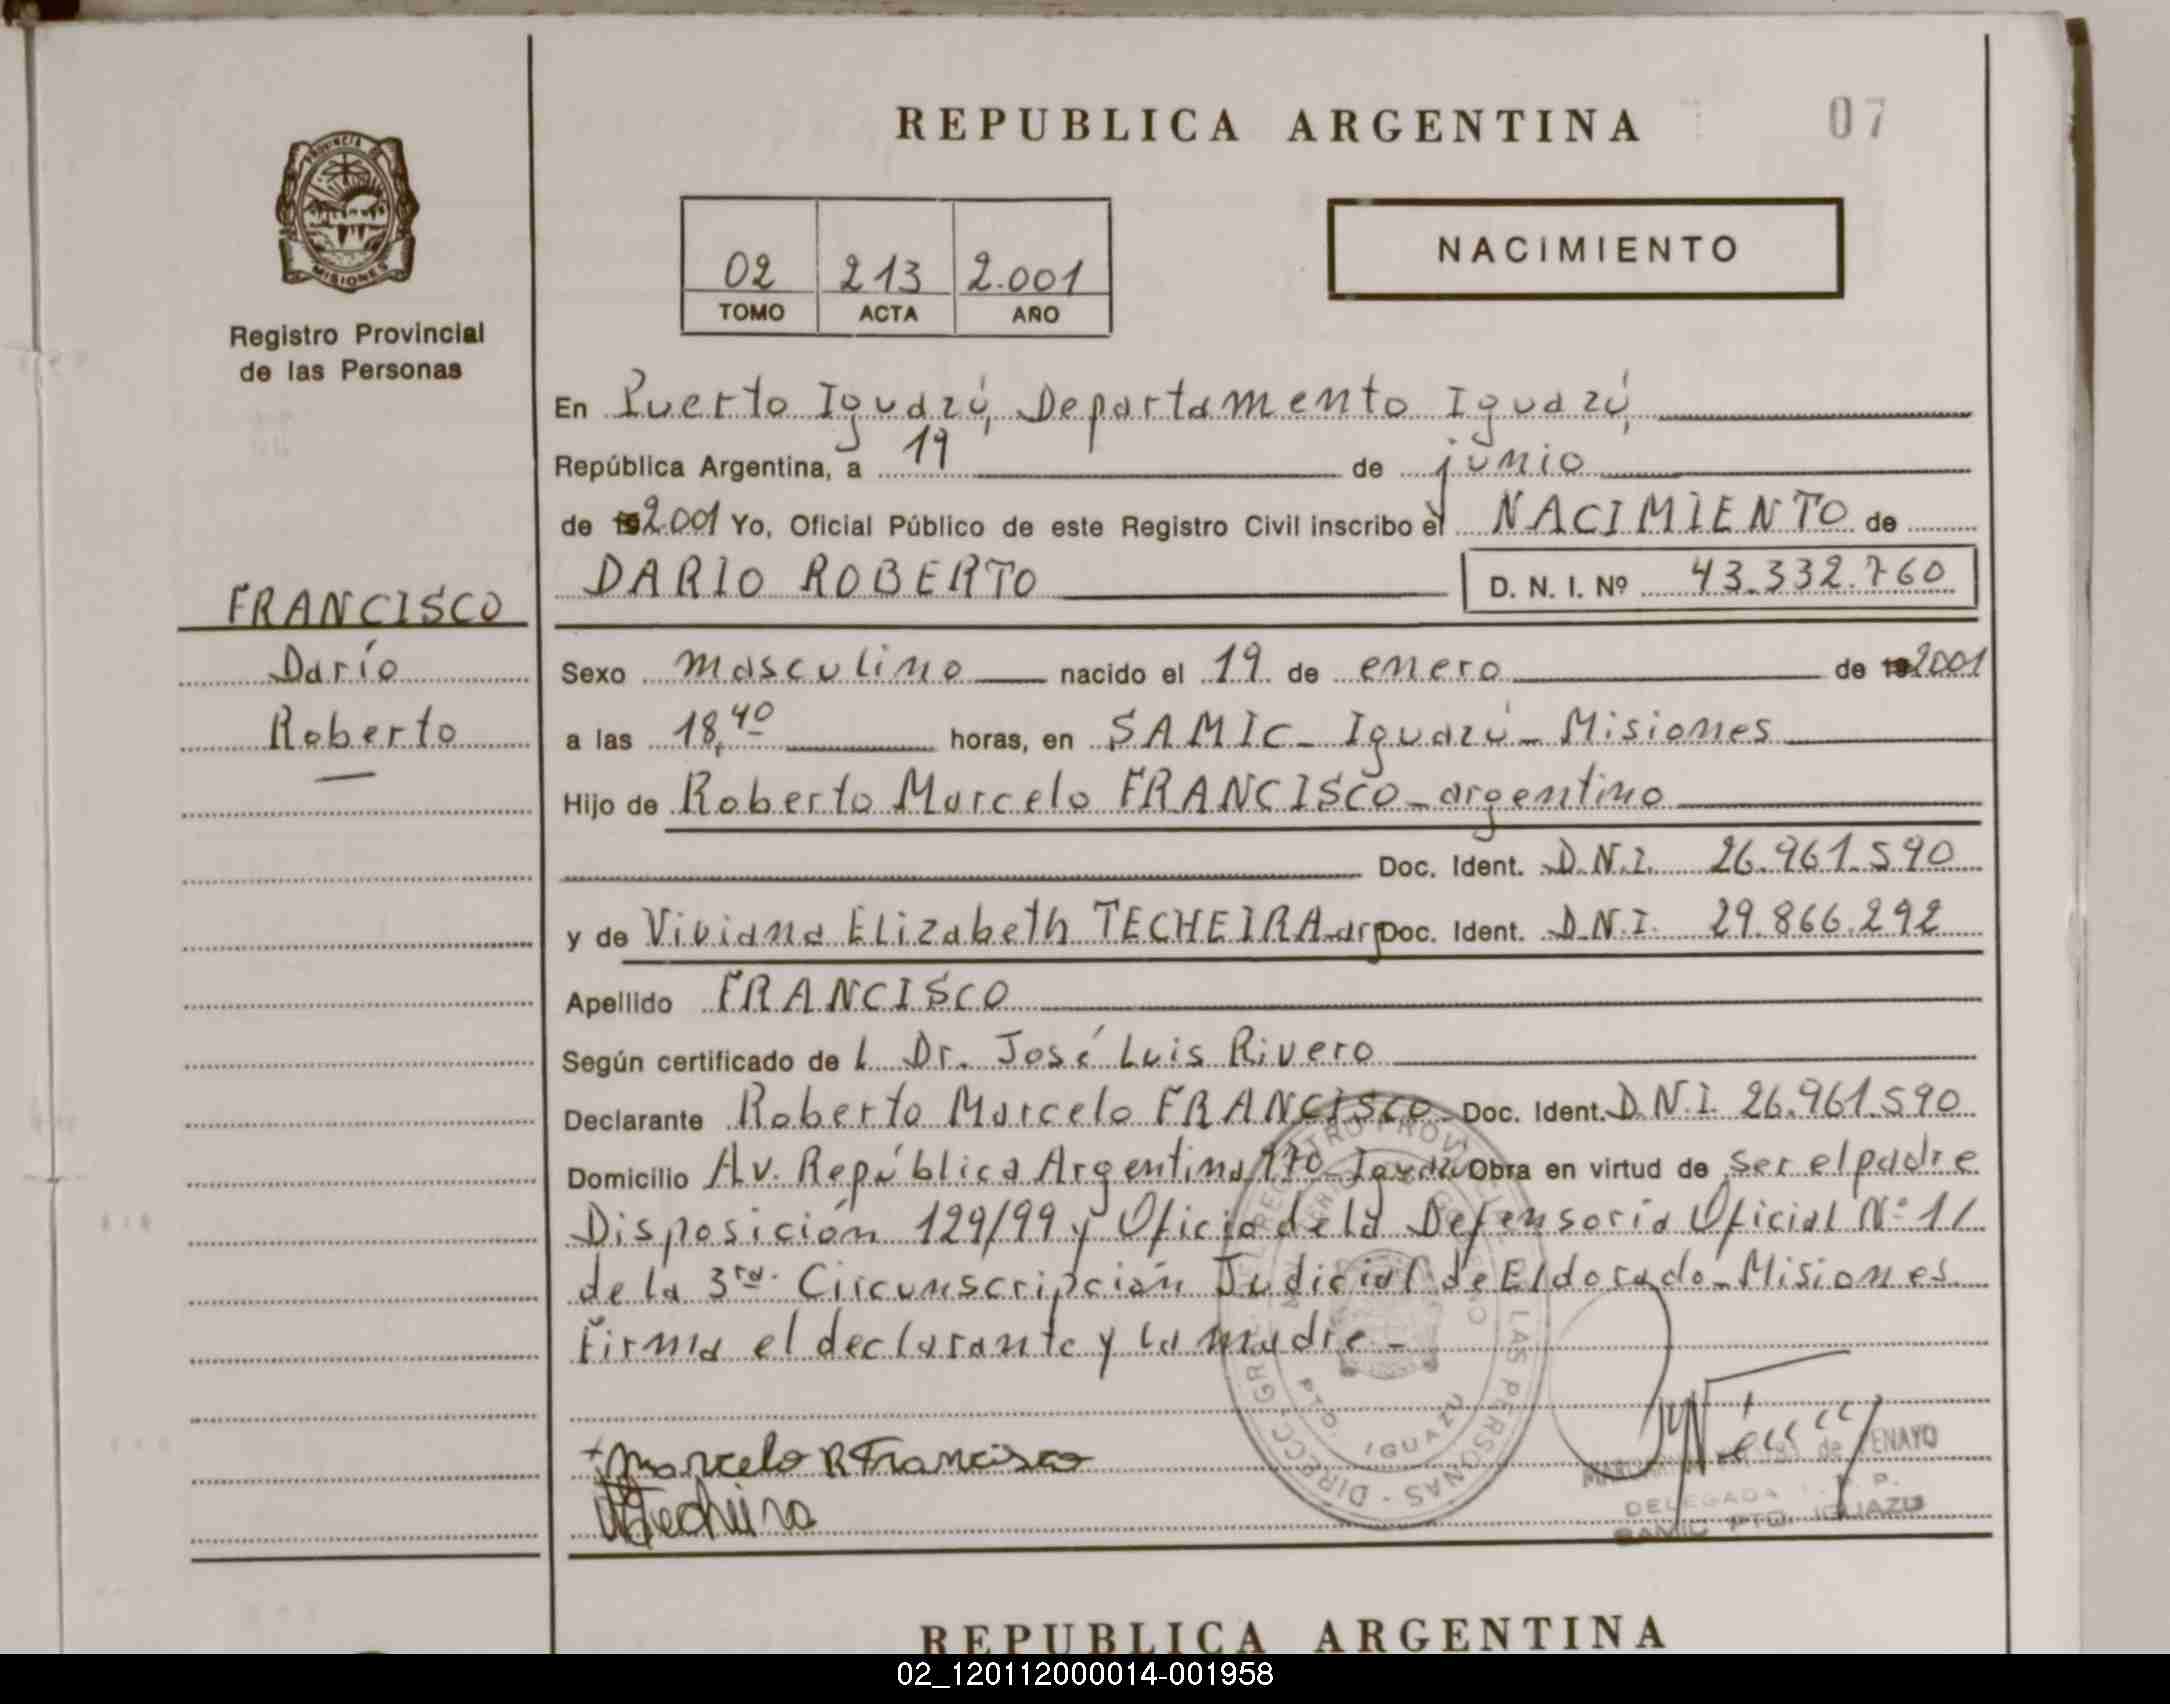 REPUBLICA ARGENTINA
07
PROVINCIA DE
MISIONES
Registro Provincial
de las Personas
02 213 2.001
TOMO ACTA AÑO
NACIMIENTO
En Puerto Iguazú, Departamento Iguazú,
República Argentina, a 19 de junio
de 19 2.001 Yo, Oficial Público de este Registro Civil inscribo el NACIMIENTO de
DARIO ROBERTO D. N. I. Nº 43.332.760
FRANCISCO
Darío
Roberto
Sexo masculino nacido el 19 de enero de 19 2001
a las 18,40 horas, en SAMIC - Iguazú - Misiones
Hijo de Roberto Marcelo FRANCISCO - argentino
Doc. Ident. D.N.I. 26.961.590
y de Viviana Elizabeth TECHEIRA - arg Doc. Ident. D.N.I. 29.866.292
Apellido FRANCISCO
Según certificado de l Dr. José Luis Rivero
Declarante Roberto Marcelo FRANCISCO Doc. Ident. D.N.I. 26.961.590
Domicilio Av. República Argentina 170 - Iguazú Obra en virtud de ser el padre
Disposición 129/99 y Oficio de la Defensoría Oficial Nº 1/
de la 3ra. Circunscripción Judicial de Eldorado - Misiones
Firma el declarante y la madre -
Marcelo R Francisco
Techeira
LAS PERSONAS - DIRECC. GRAL.
PTO. IGUAZU
de TENAYO
DELEGADA
SAMIC PTO. IGUAZU
REPUBLICA ARGENTINA
02_120112000014-001958